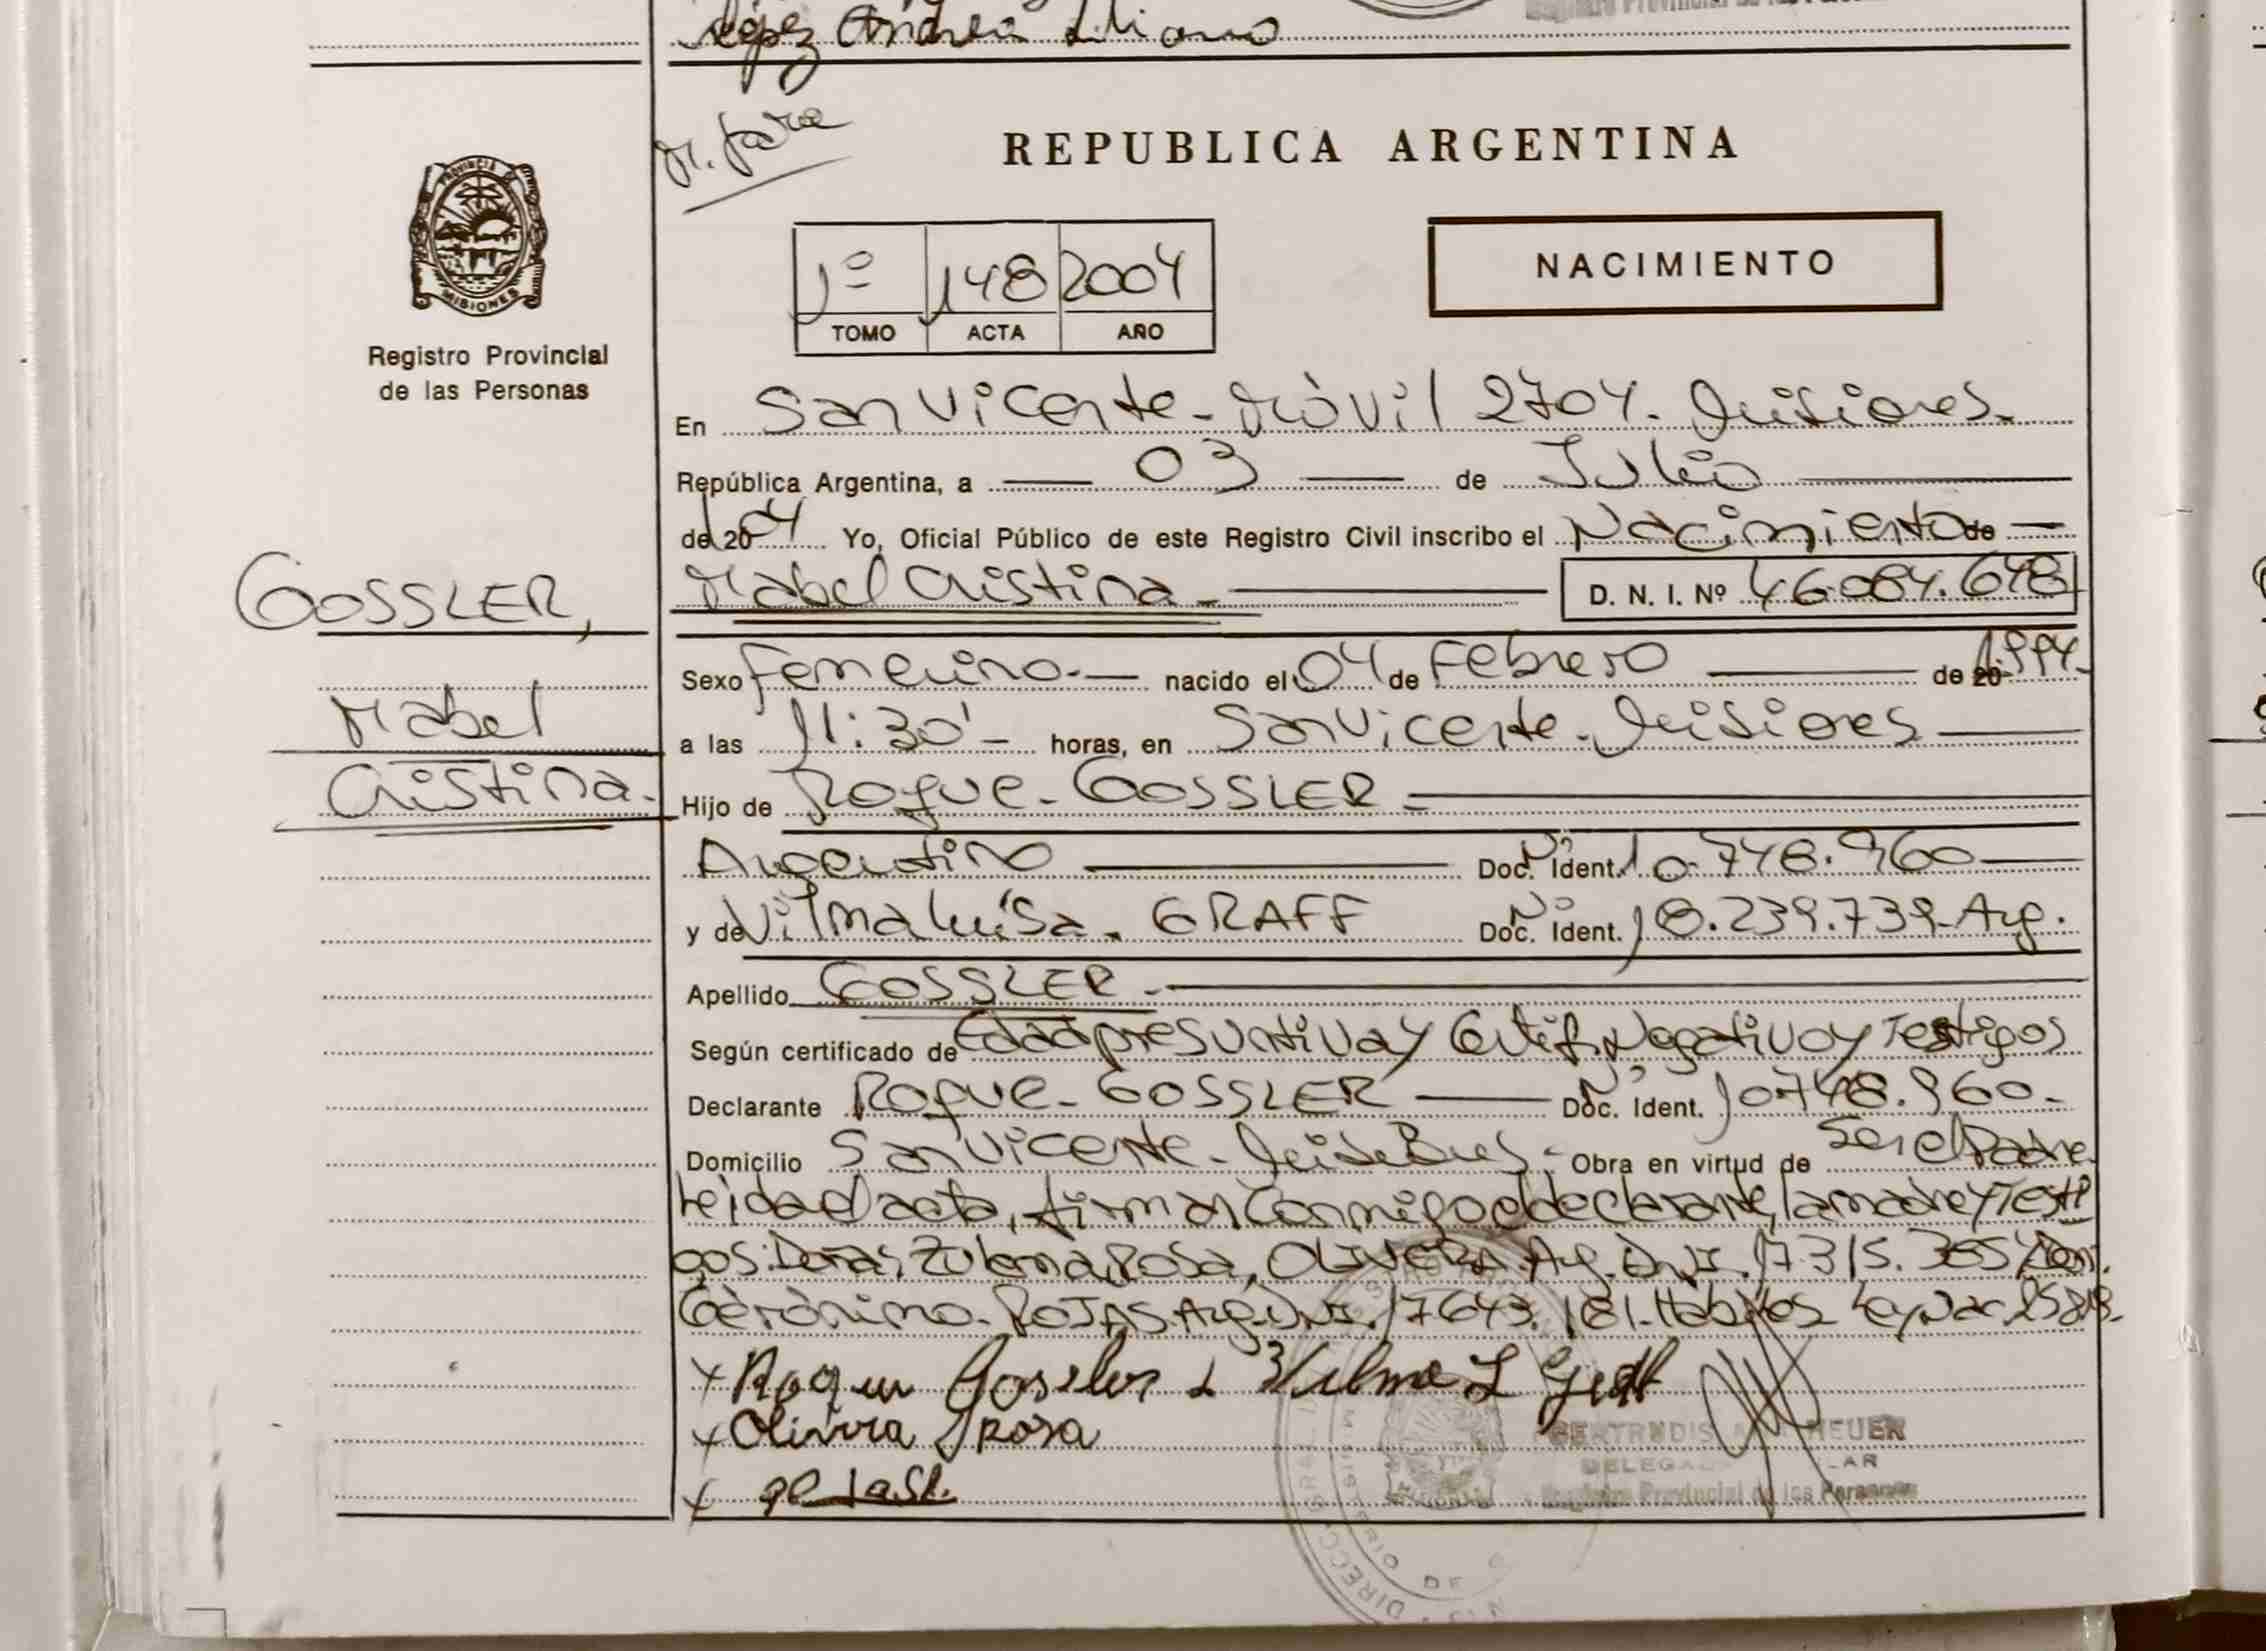 López Andrea Liliana
REPUBLICA ARGENTINA
PROVINCIA DE
MISIONES
Registro Provincial
de las Personas
1º 148 2004
TOMO ACTA AÑO
NACIMIENTO
En San Vicente - Móvil 2704. Misiones.
República Argentina, a 03 de Julio
de 2004 Yo, Oficial Público de este Registro Civil inscribo el Nacimiento de
GOSSLER,
Mabel Cristina
D. N. I. Nº 46.084.648
Sexo Femenino. nacido el 04 de Febrero de 20 1994.
Mabel
a las 11:30' horas, en San Vicente - Misiones
Cristina.
Hijo de Roque - GOSSLER
Argentino Doc. Ident. 10.748.960
y de Vilma Luisa. GRAFF Doc. Ident. 18.239.739 - Arg.
Apellido GOSSLER.
Según certificado de Edad presuntiva y Certif. Negativo y Testigos
Declarante Roque - GOSSLER Doc. Ident. 10.748.960.
Domicilio San Vicente - Obra en virtud de Ser el Padre.
Leida el acta, firman Conmigo el declarante, la madre y Testi
gos: Zulema Rosa, OLIVERA. Arg. D.N.I. 17.315.385
Gerónimo. ROJAS. Arg. D.N.I. 17643.181. Hábiles Ley Nac. 25819.
x Roque Gossler x Vilma L
x Olivera Rosa
x
GERTRUDIS HEUER
Registro Provincial de las Personas